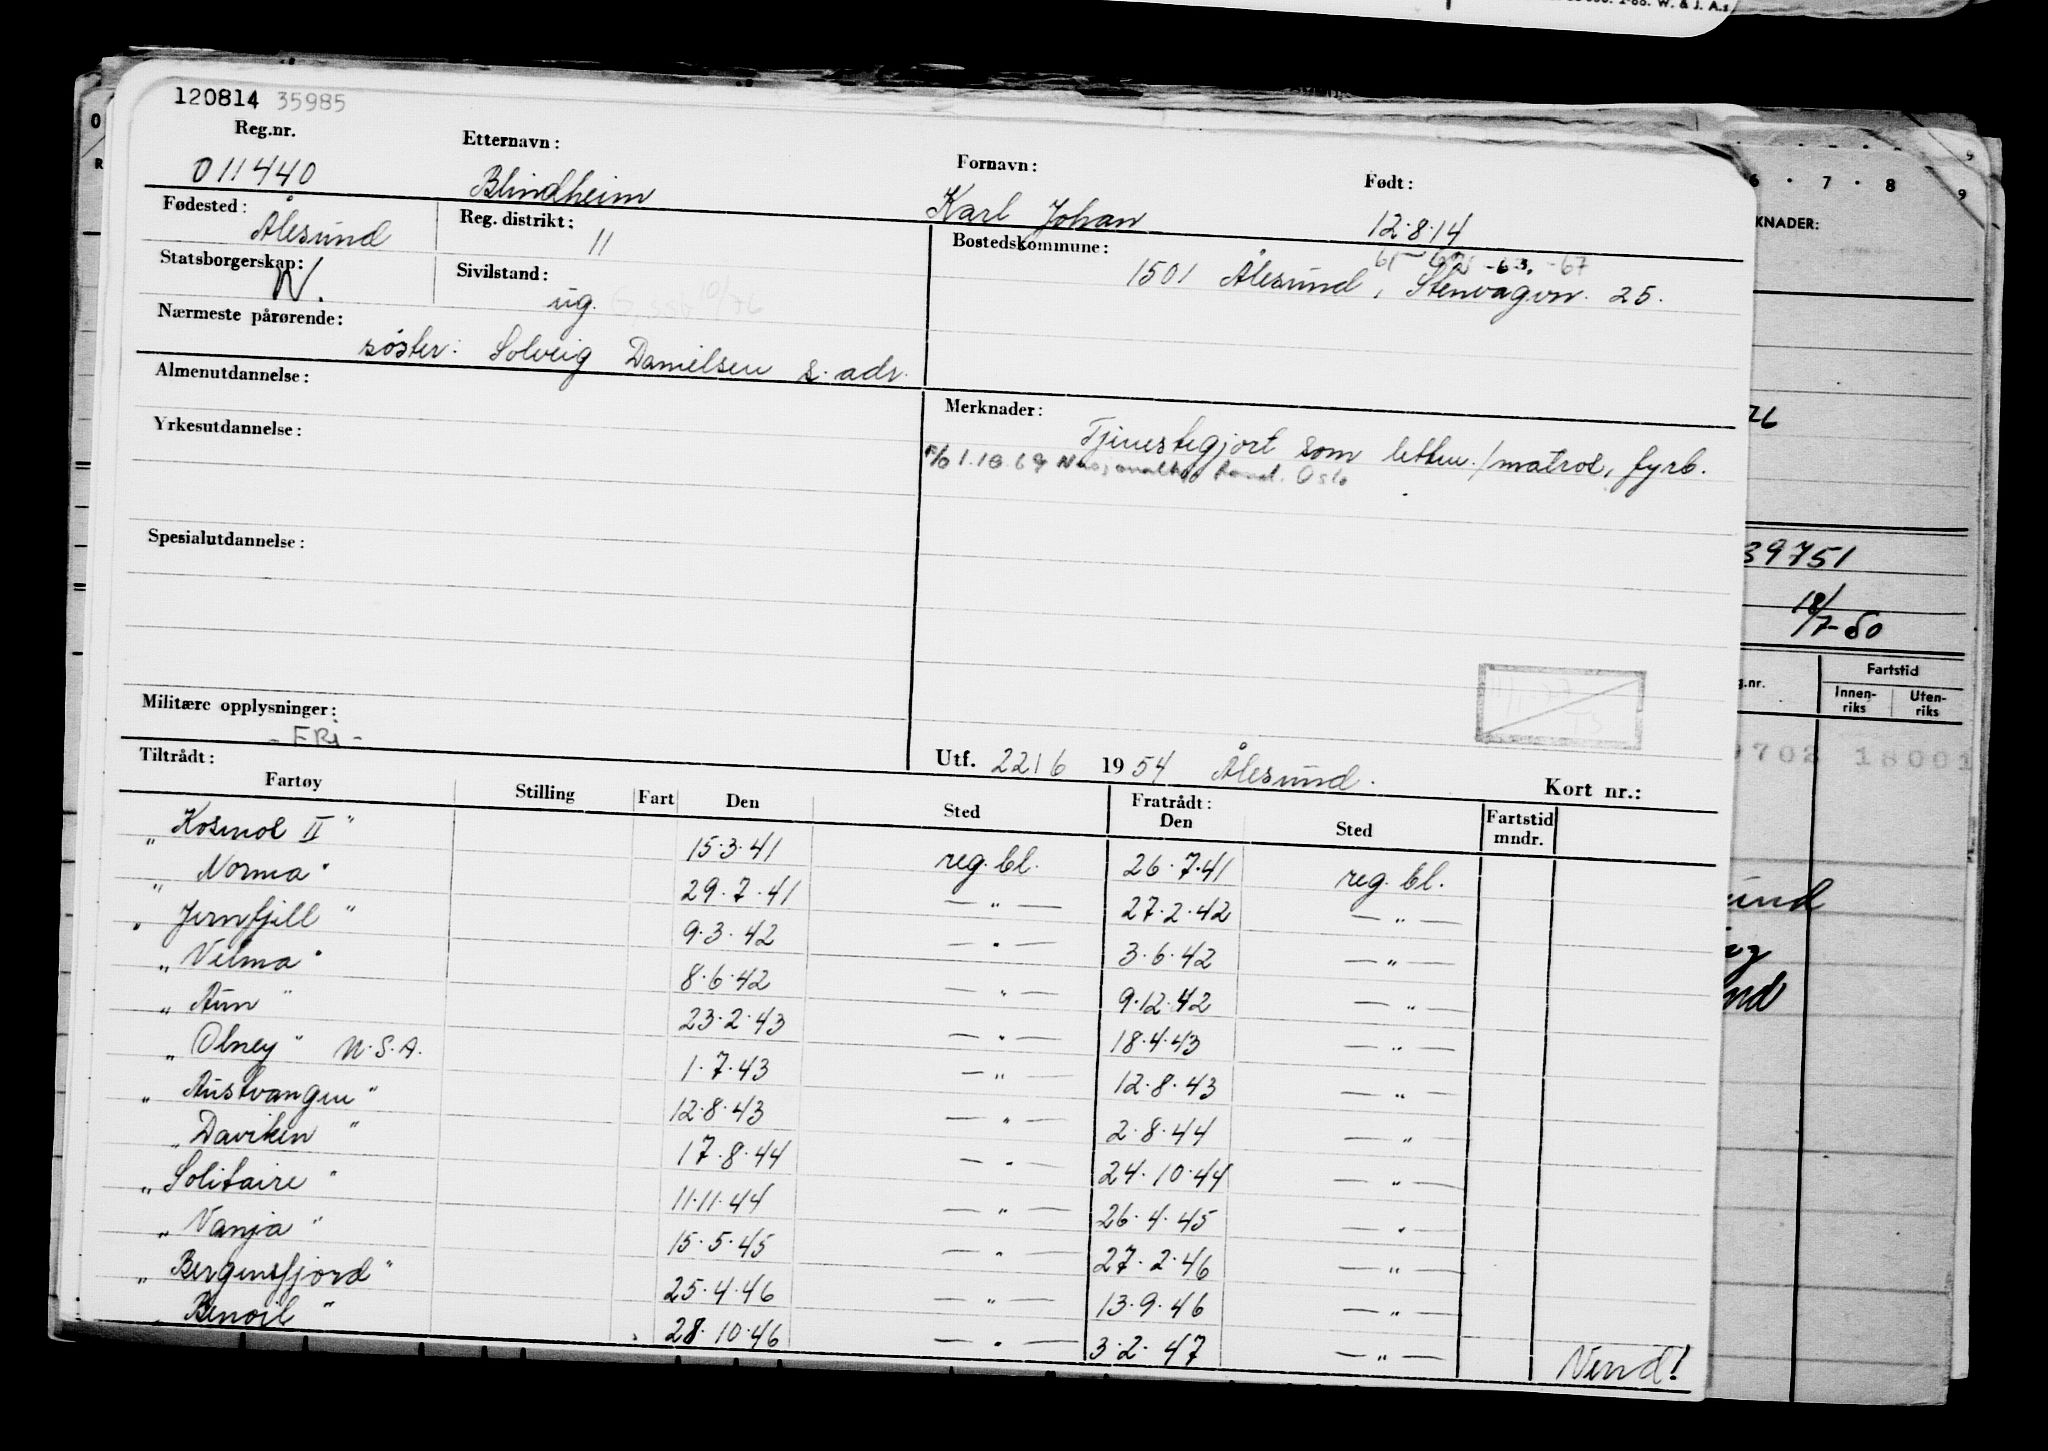 120814 35985
Reg.nr. Etternavn: Fornavn: Født:
011440 Blindheim Karl Johan 12.8.14
Fødested: Ålesund Reg. distrikt: 11 Bostedskommune:
61 -63. -67
1501 Ålesund, Stenvagvn. 25.
Statsborgerskap: N. Sivilstand: ug.
Nærmeste pårørende:
søster: Solveig Danielsen s. adr.
Almenutdannelse:
Merknader: Tjenestegjort som lettm./matros, fyrb.
Yrkesutdannelse:
1.10.69 Oslo
Spesialutdannelse:
Militære opplysninger:
- FRI -
Utf. 22/6 1954 Ålesund. Kort nr.:
Tiltrådt: Fratrådt:
Fartøy Stilling Fart Den Sted Den Sted Fartstid mndr.
„ Kosmos II " 15.3.41 reg. bl. 26.7.41 reg. bl.
„ Norma " 29.7.41 — „ — 27.2.42 — „ —
„ Jernfjell " 9.3.42 — „ — 3.6.42 — „ —
„ Velma " 8.6.42 — „ — 9.12.42 — „
„ Aun " 23.2.43 — „ — 18.4.43 — „ —
„ Olney " U.S.A. 1.7.43 — „ — 12.8.43 — „ —
„ Austvangen " 12.8.43 — „ — 2.8.44 — „
„ Daviken " 17.8.44 — „ — 24.10.44 — „ —
„ Solitaire " 11.11.44 — „ — 26.4.45 — „
„ Vanja " 15.5.45 — „ — 27.2.46 — „ —
„ Bergensfjord " 25.4.46 — „ — 13.9.46 — „ —
„ Benoil " 28.10.46 — „ — 3.2.47 — „ —
Vend!
W. & J. A.s
6 · 7 · 8
9
KNADER:
39751
18/7-50
g.nr. Fartstid
Innen-riks Uten-riks
9702 18001
und
nd